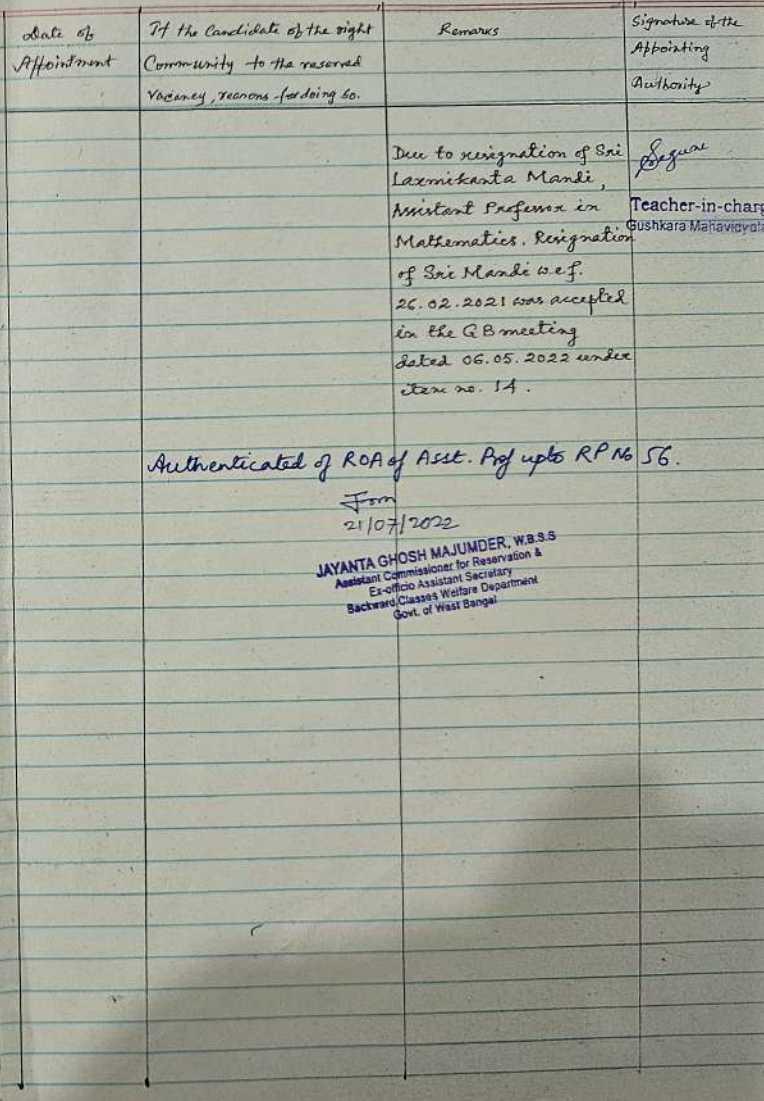 Date of
Appointment
If the Candidate of the right
Community to the reserved
Vacancy, reasons for doing so.
Remarks
Signature of the
Appointing
Authority
Due to resignation of Sri
Laxmikanta Mandi,
Assistant Professor in
Mathematics. Resignation
of Sri Mandi w.e.f.
26.02.2021 was accepted
in the GB meeting
dated 06.05.2022 under
item no. 14.
Teacher-in-charg
Gushkara Mahavidyala
Authenticated of ROA of Asst. Prof upto RP No 56.
21/07/2022
JAYANTA GHOSH MAJUMDER, W.B.S.S
Assistant Commissioner for Reservation &
Ex-officio Assistant Secretary
Backward Classes Welfare Department
Govt. of West Bengal